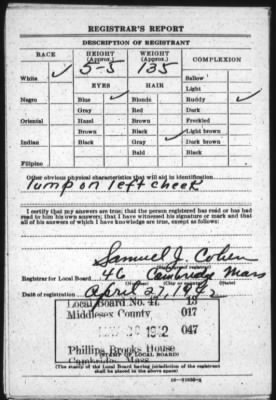 REGISTRAR'S REPORT
DESCRIPTION OF REGISTRANT
RACE HEIGHT (Approx.) WEIGHT (Approx.) COMPLEXION
5-5 135
White ✓ Sallow
EYES HAIR Light
Negro Blue ✓ Blonde Ruddy ✓
Gray Red Dark
Oriental Hazel Brown Freckled
Brown Black Light brown
Indian Black Gray ✓ Dark brown
Bald Black
Filipino
Other obvious physical characteristics that will aid in identification
lump on left cheek
I certify that my answers are true; that the person registered has read or has had
read to him his own answers; that I have witnessed his signature or mark and that
all of his answers of which I have knowledge are true, except as follows:
Samuel J. Cohen
Registrar for Local Board 46 Cambridge Mass
Date of registration April 27, 1942
Local Board No. 47 13
Middlesex County 017
1942 047
Phillips Brooks House
Cambridge, Mass.
(STAMP OF LOCAL BOARD)
(The stamp of the Local Board having jurisdiction of the registrant
shall be placed in the above space)